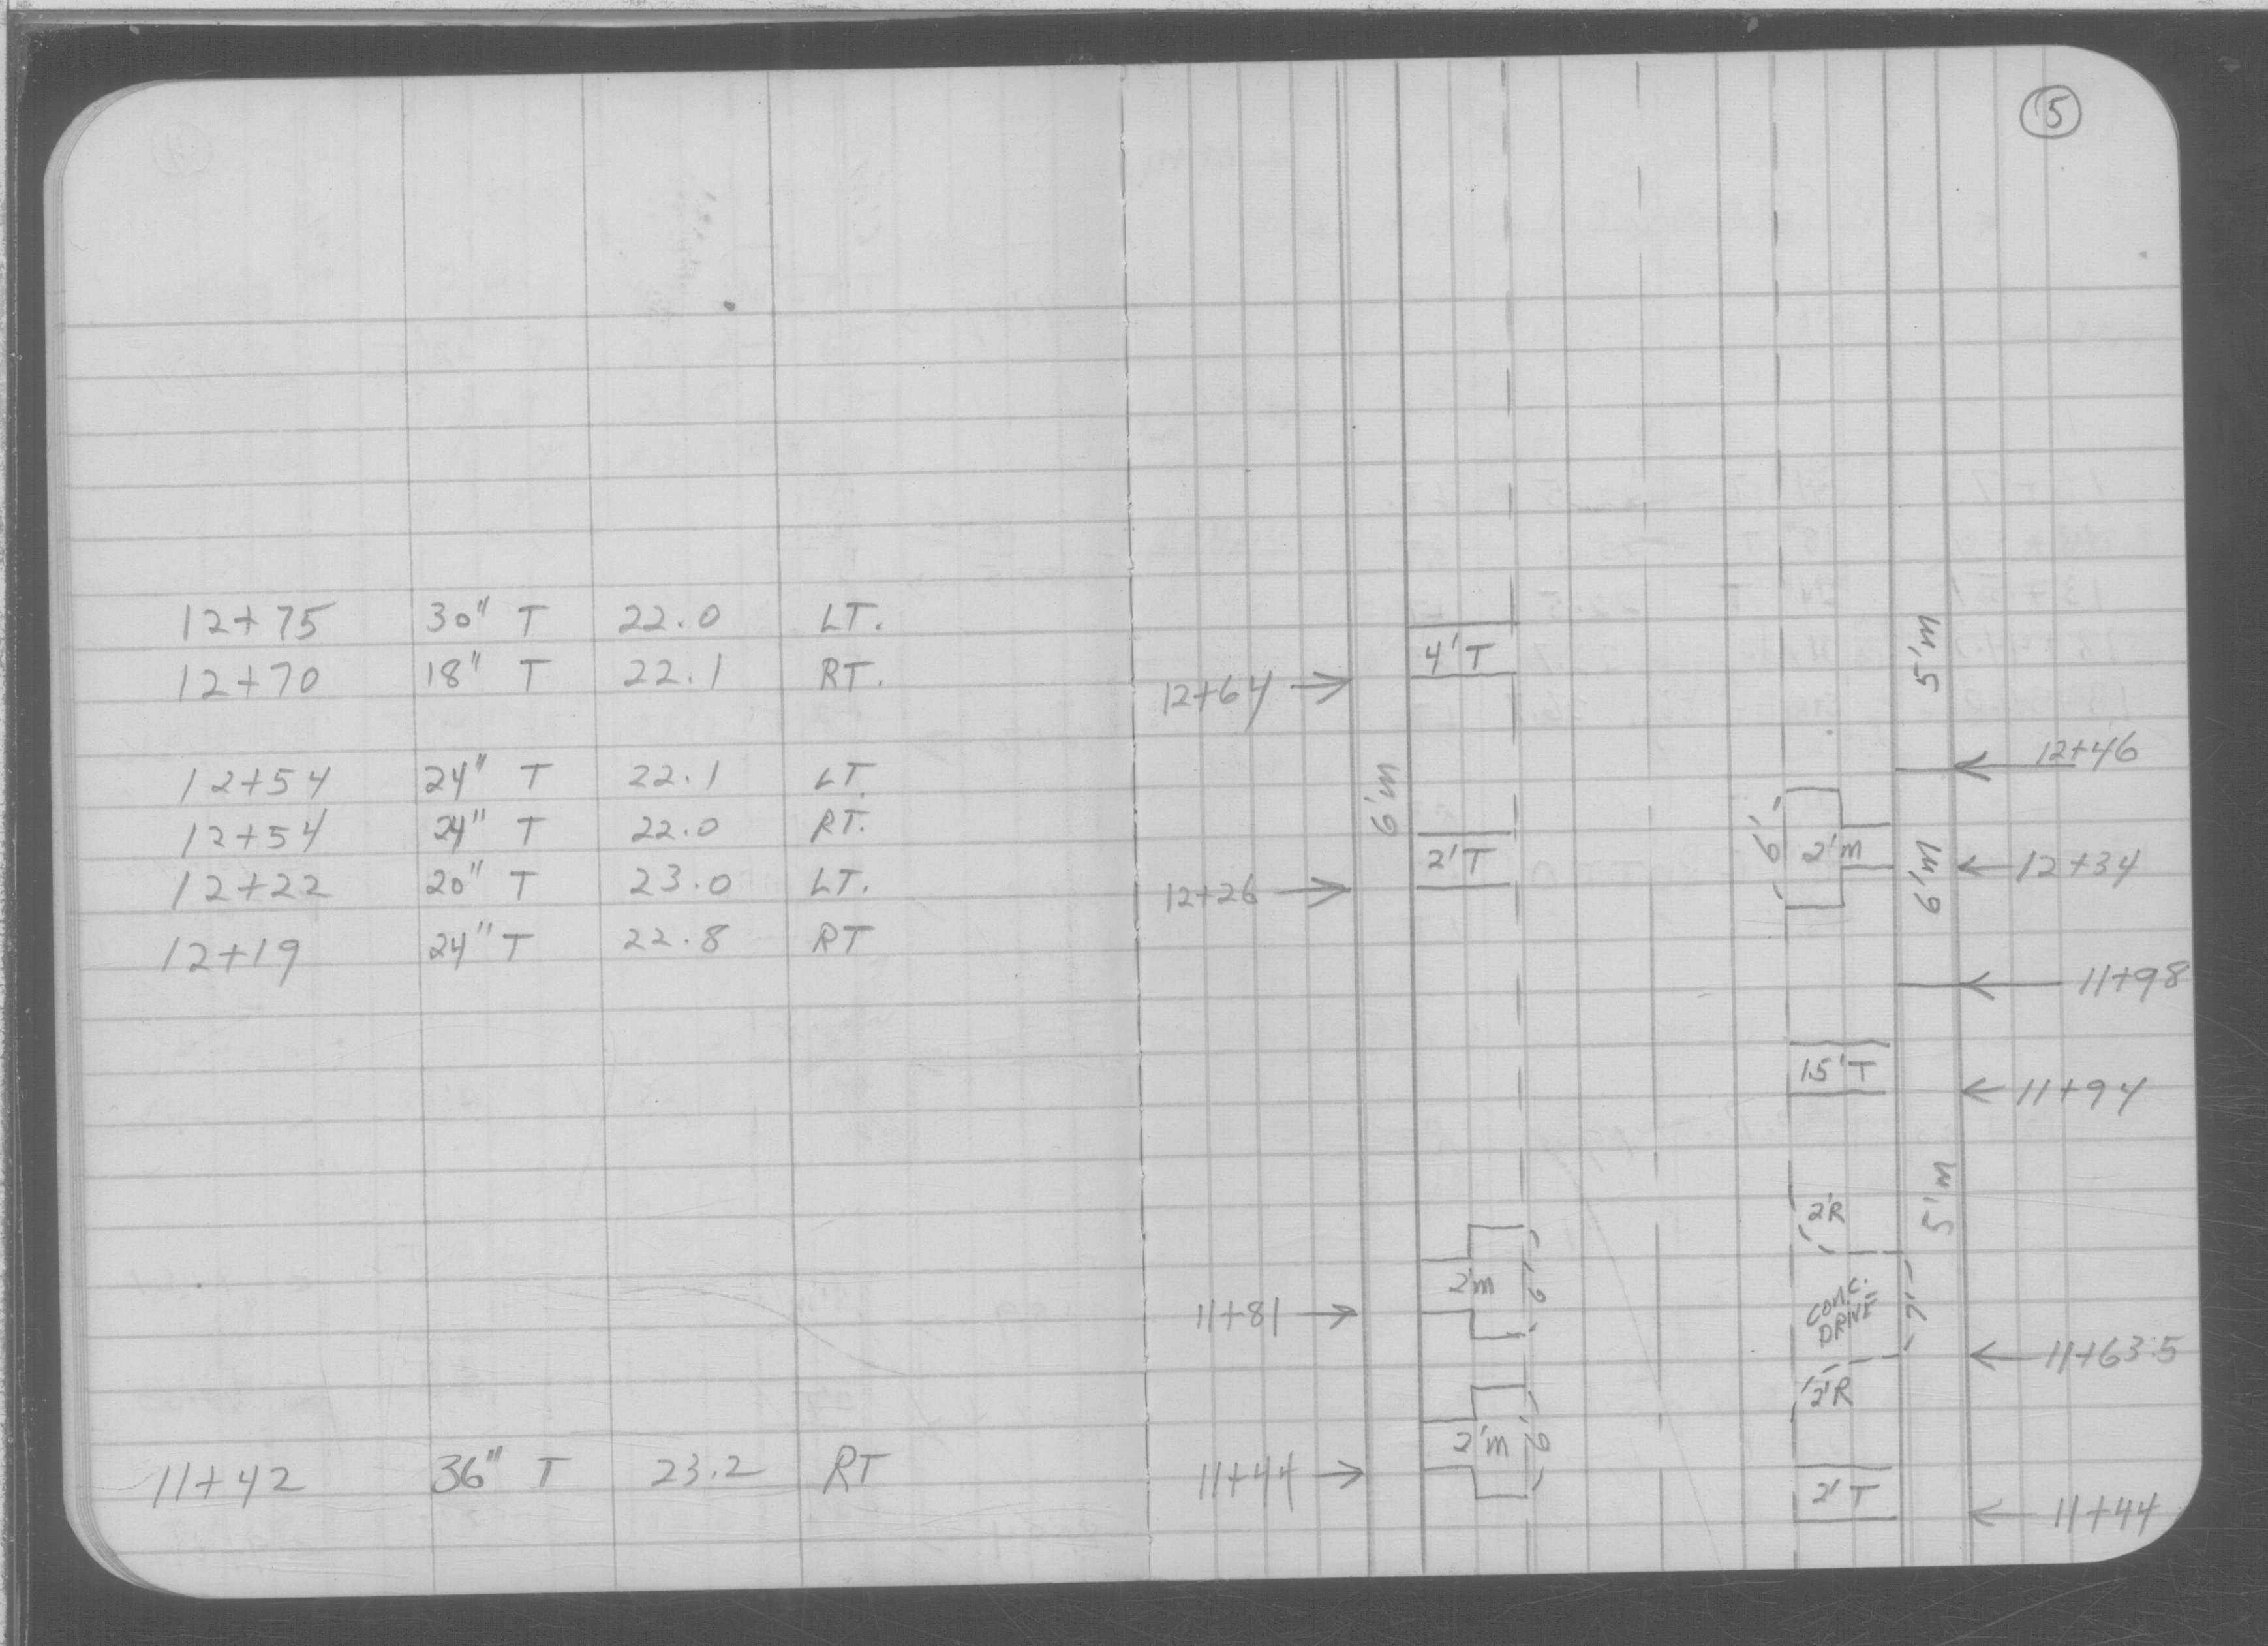 5
12+75 30" T 22.0 LT.
12+70 18" T 22.1 RT.
12+54 24" T 22.1 LT.
12+54 24" T 22.0 RT.
12+22 20" T 23.0 LT.
12+19 24" T 22.8 RT
11+42 36" T 23.2 RT
4'T
5'm
12+64
12+46
6'm
6'
2'm
2'T
6'm
12+34
12+26
11+98
15'T
11+94
5'm
2'R
2'm
6'
CONC. DRIVE
7'
11+81
11+63.5
2'R
2'm
6'
11+44
2'T
11+44